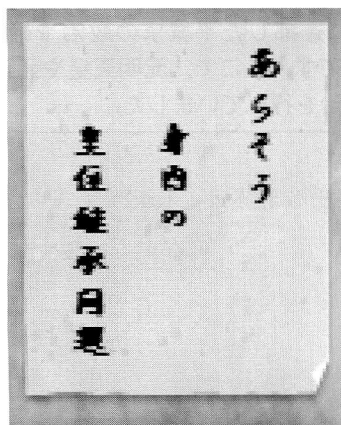 あらそう
身内の
皇位継承問題